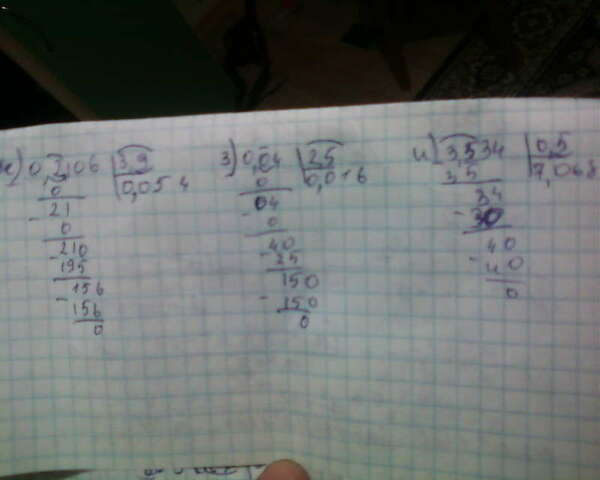 ж) 0,2106 | 3,9
0 | 0,054
- 21
0
- 210
195
- 156
156
0
з) 0,04 | 2,5
0 | 0,016
- 04
0
- 40
25
- 150
150
0
и) 3,534 | 0,5
35 | 7,068
- 34
30
- 40
40
0